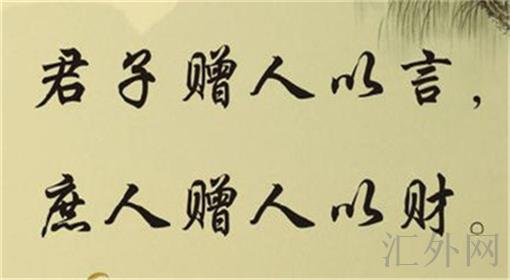 君子赠人以言，
庶人赠人以财。
汇外网